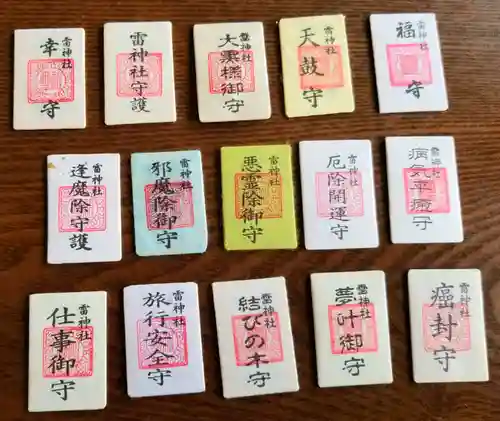 雷神社
幸守
雷神社
雷神社守護
雷神社
大黒様御守
雷神社
天鼓守
福守
雷神社
逢魔除守護
雷神社
邪魔除御守
雷神社
悪霊除御守
雷神社
厄除開運守
雷神社
病気平癒守
雷神社
仕事御守
雷神社
旅行安全守
雷神社
結びの木守
雷神社
夢叶御守
雷神社
癌封守